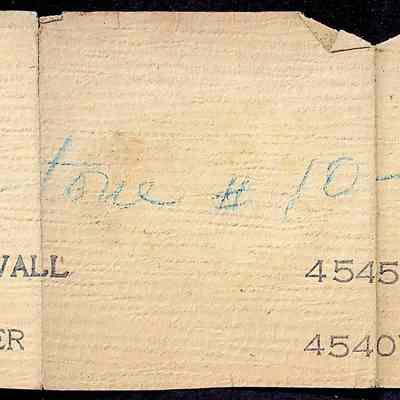 tone # 10-
WALL 4545
ER 4540